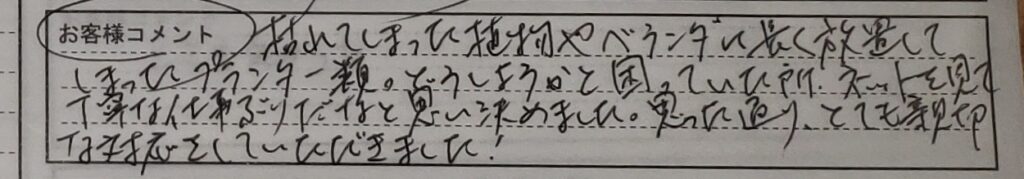 お客様コメント 枯れてしまった植物やベランダに長く放置して
しまったプランター類。どうしようかと困っていた所、ネットを見て
丁寧な人なと思い決めました。思った通り、とても親切
な対応をしていただきました!